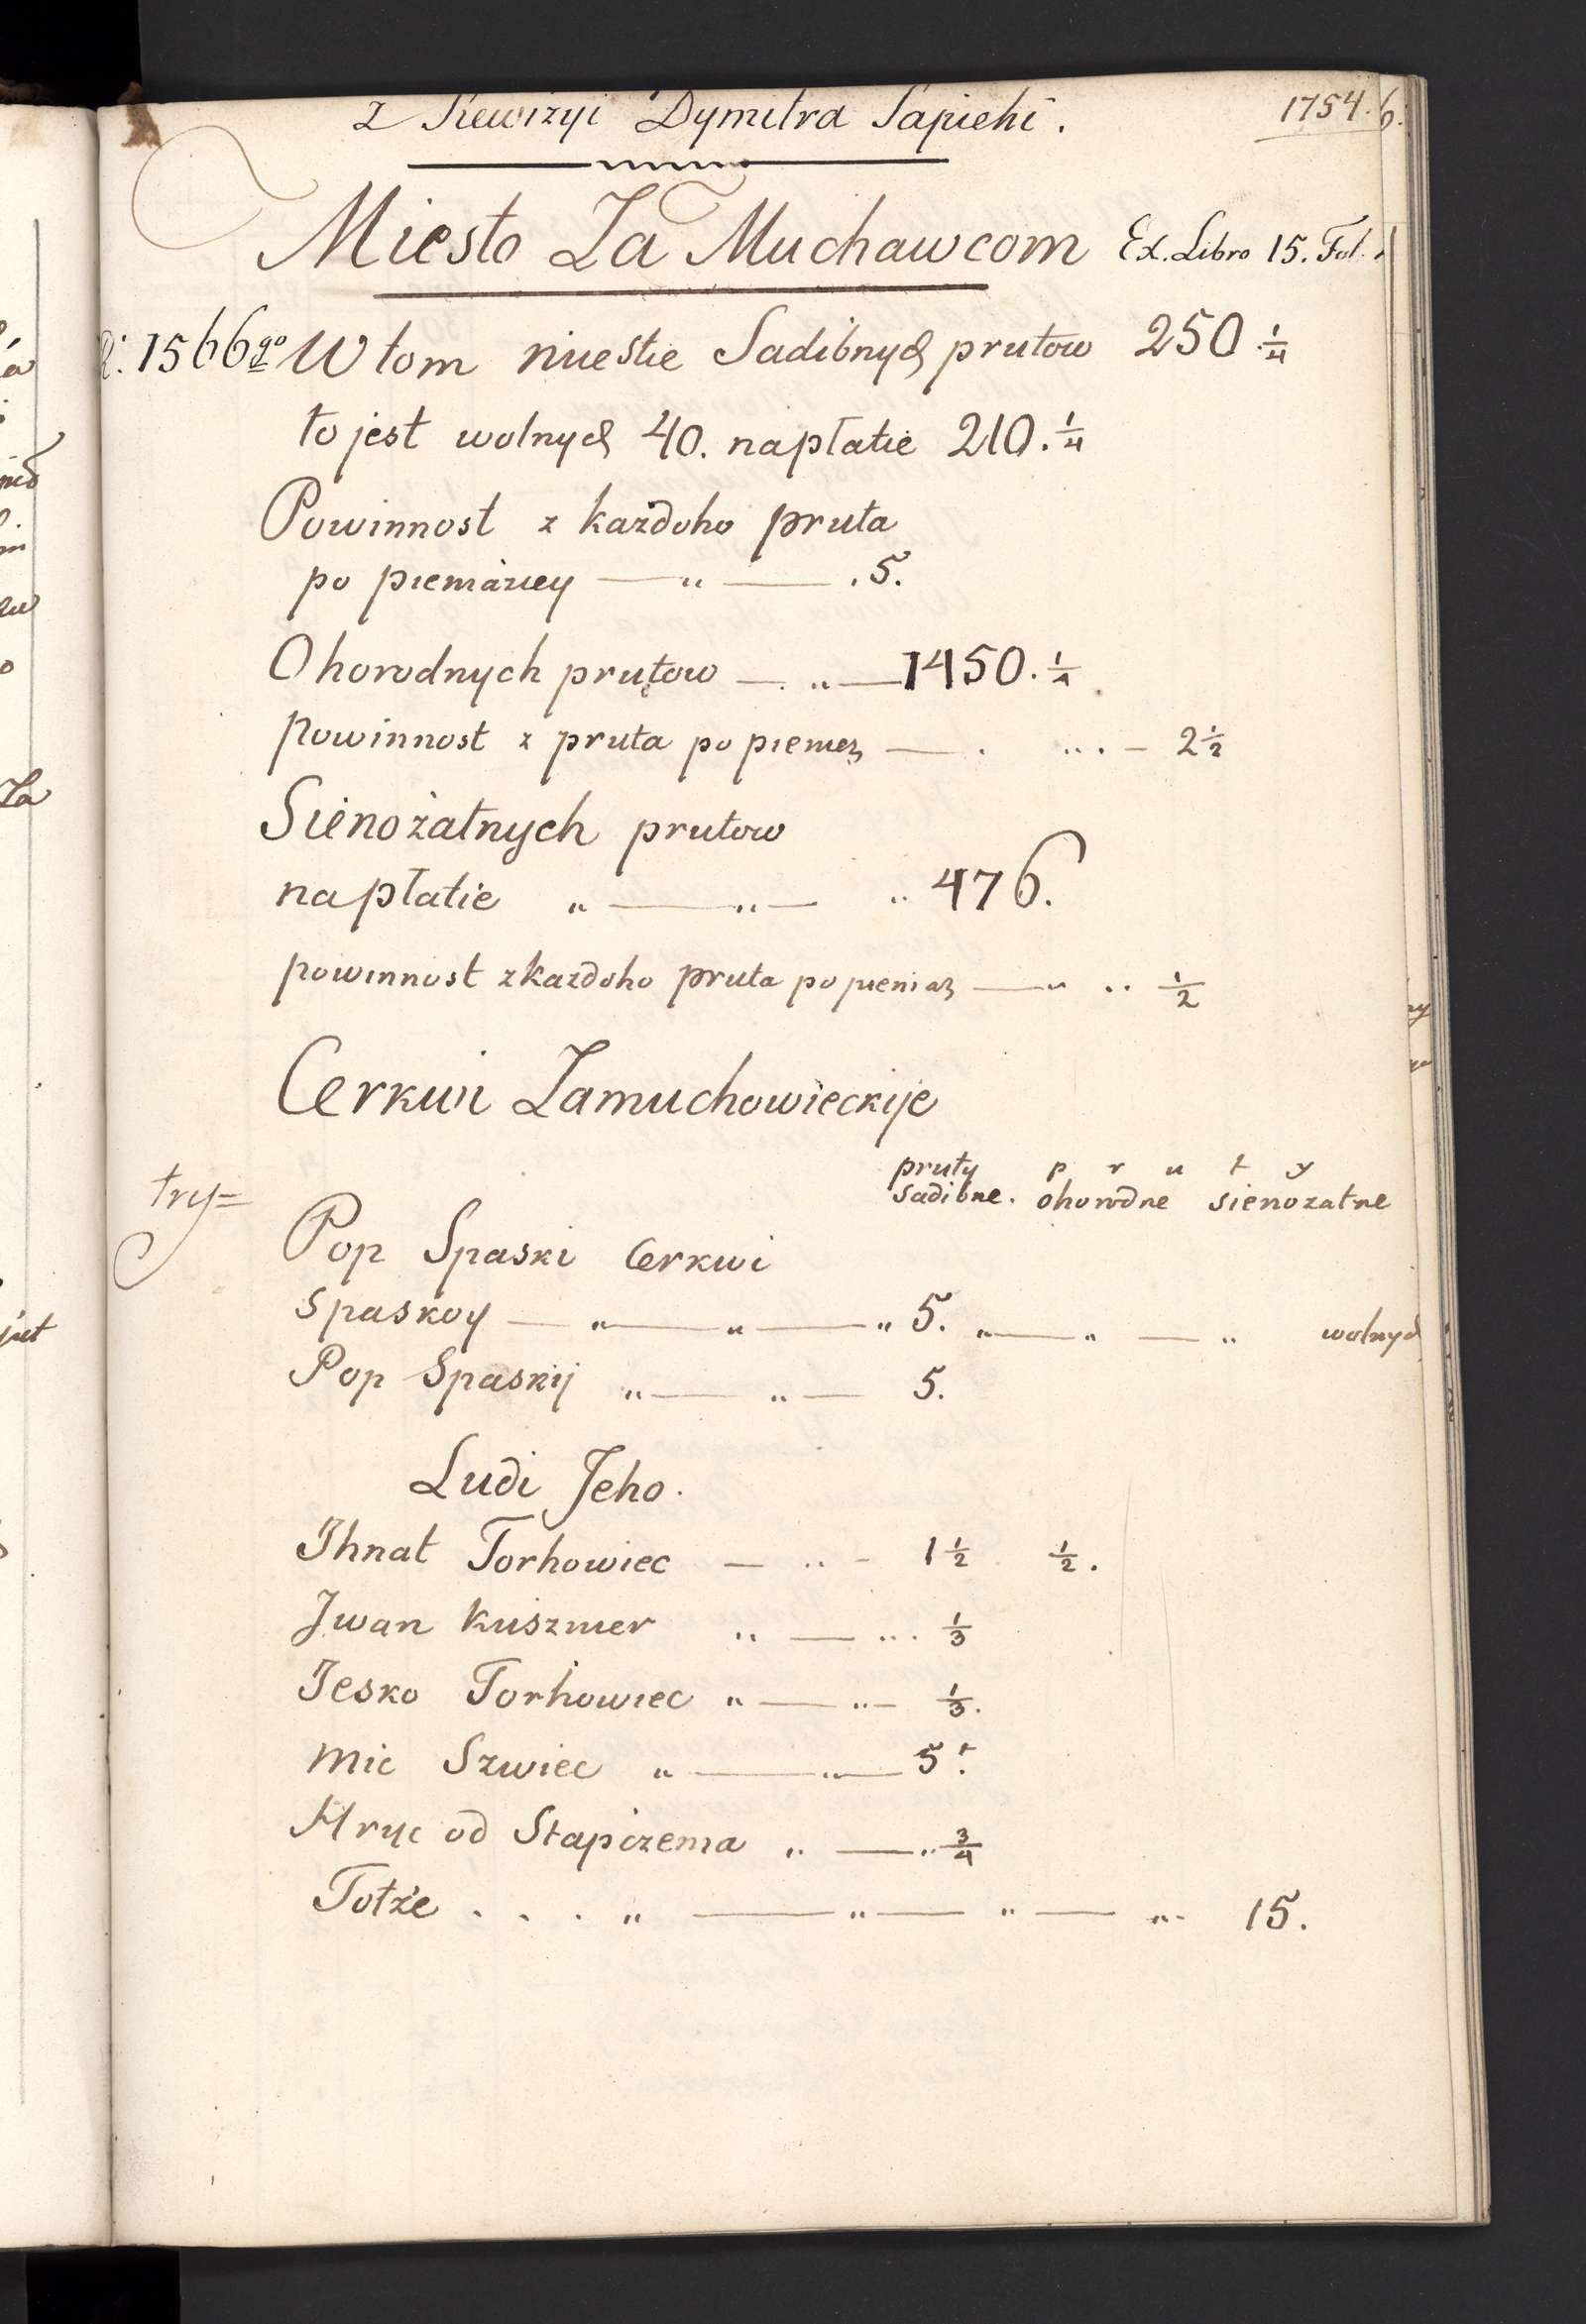 z Rewizyi Dymitra Sapiehi.
1754. 6.
Miesto Za Muchawcom Ex. Libro 15. Fol.
R. 1566go W tom miestie Sadibnych prutow 250 1/4
to jest wolnych 40. napłatie 210. 1/4
Powinnost z każdoho pruta
po pieniaziey — " — . 5.
Ohorodnych prutow — . " — 1450. 1/4
powinnost z pruta po pieniez — . " . . — 2 1/2
Sienożatnych prutow
napłatie " — " — " 476.
powinnost z każdoho pruta po pieniaz — " . . 1/2
Cerkwi Zamuchowieckije
pruty p r u t y
sadibne. ohorodne sienozatne
try=
Pop Spaski Cerkwi
Spaskoy — " — " — " 5. " — " — " wolnych
Pop Spaskij " — " — 5.
Ludi Jeho.
Ihnat Torhowiec — " - 1 1/2 1/2.
Jwan Kuszmer " — ... 1/3
Jesko Torhowiec " — " — 1/3.
Mic Szwiec " — " — 5
Hryc od Stapiczenia " — " 3/4
Totże . . . " — " — " — " - 15.